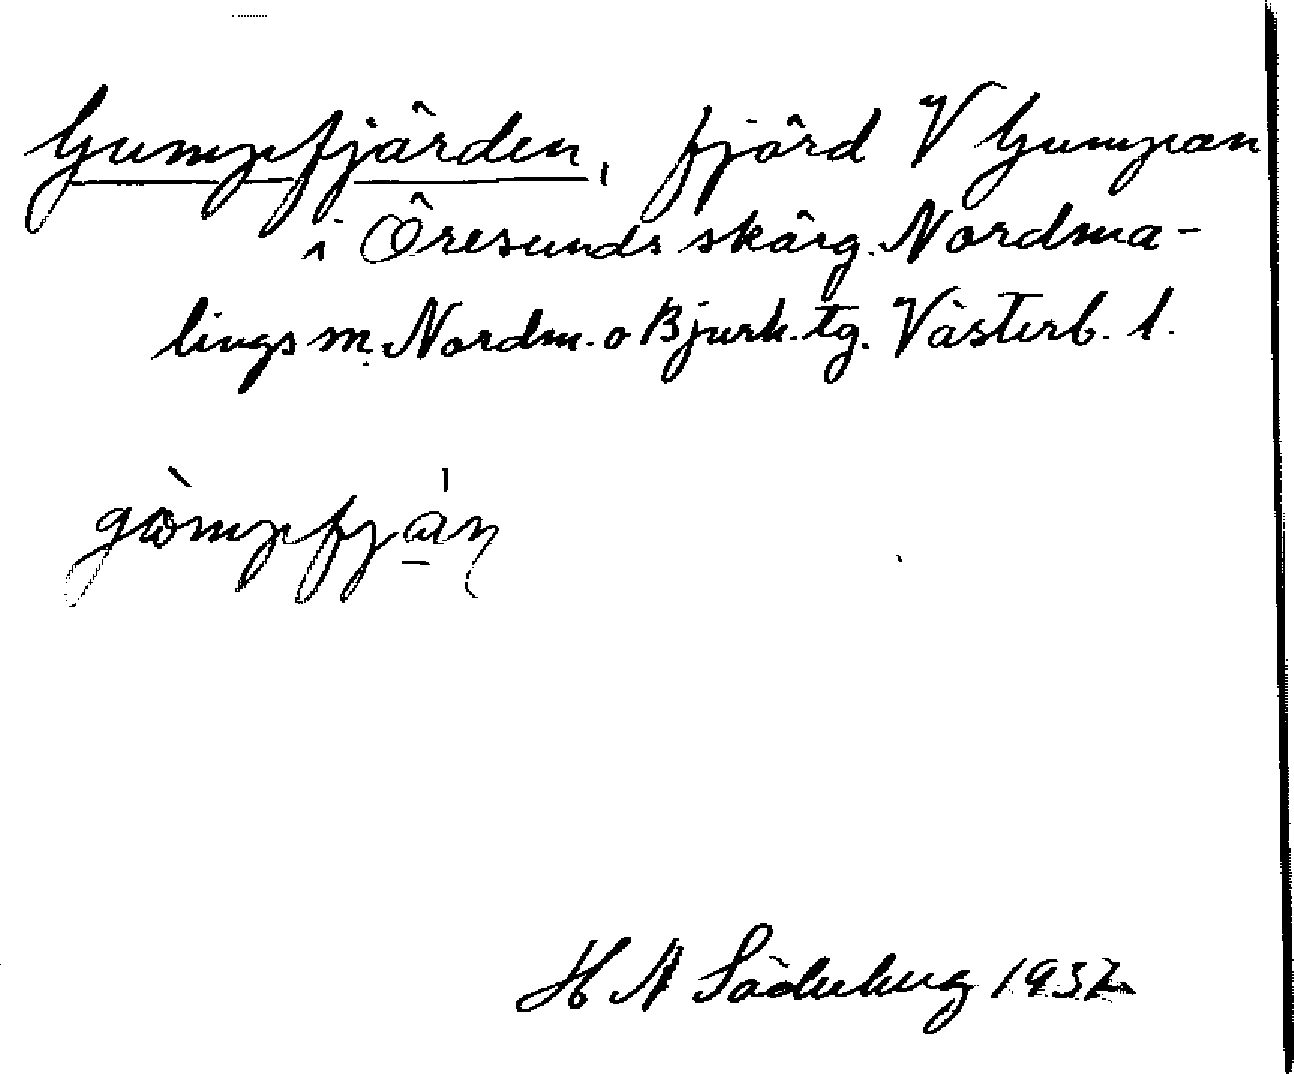 Gumpfjärden, fjärd V Gumpan
i Öresunds skärg. Nordma-
lings sn. Nordm. o Bjurh. tg. Västerb. l.
gòmpfján
H A Söderberg 1932